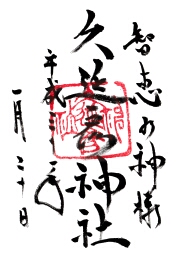 智恵の神様
久延彦神社
平成
一月
十日